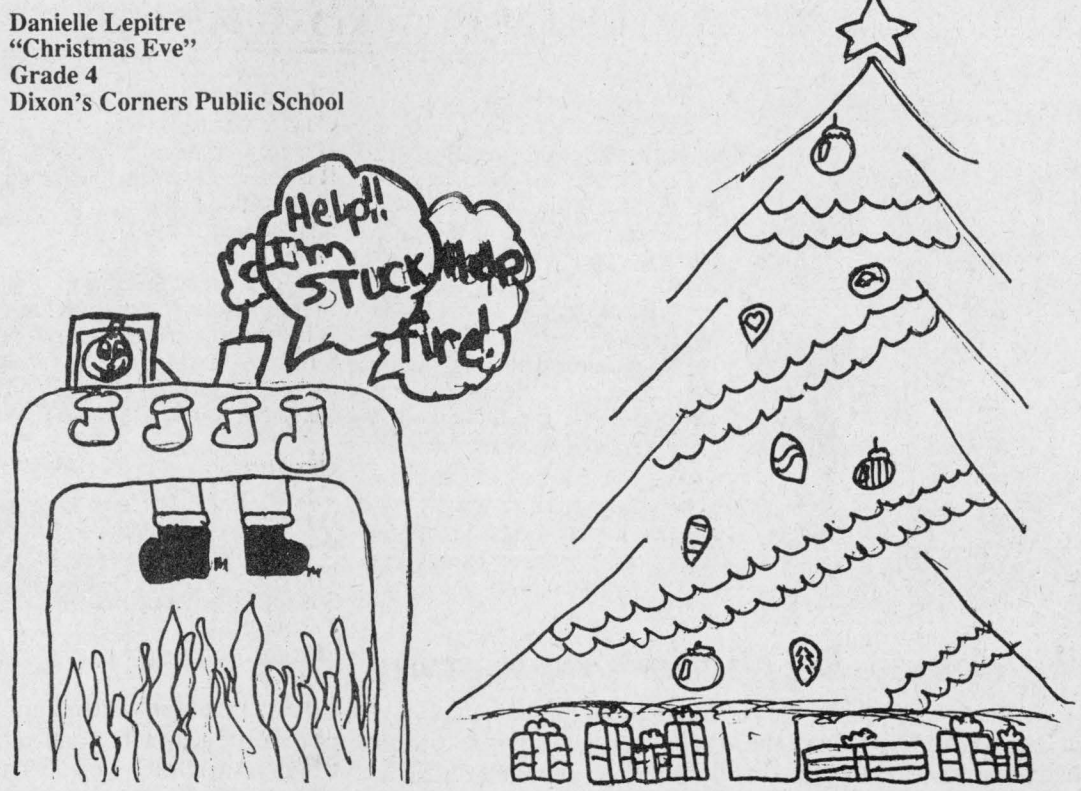 Danielle Lepitre
“Christmas Eve”
Grade 4
Dixon’s Corners Public School
Help!!
I'm
STUCK
Help
fire!